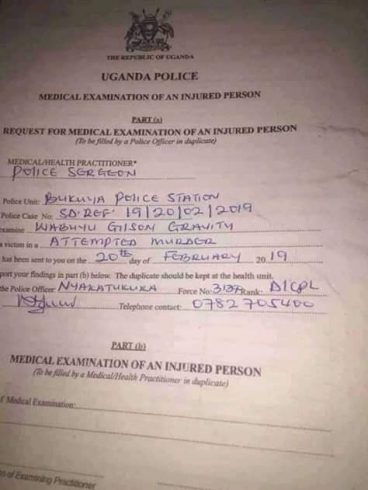 THE REPUBLIC OF UGANDA
UGANDA POLICE
MEDICAL EXAMINATION OF AN INJURED PERSON
PART (a)
REQUEST FOR MEDICAL EXAMINATION OF AN INJURED PERSON
(To be filled by a Police Officer in duplicate)
MEDICAL/HEALTH PRACTITIONER*
POLICE SERGEON
Police Unit: BUKUYA POLICE STATION
Police Case No: SD:REF: 19/20/02/2019
examine WABUYU GILSON GRAVITY
a victim in a ATTEMPTED MURDER
has been sent to you on the 20th day of FEBRUARY 2019
port your findings in part (b) below. The duplicate should be kept at the health unit.
the Police Officer NYAKATUKURA Force No: Rank: D/CPL
Telephone contact: 0782705400
PART (b)
MEDICAL EXAMINATION OF AN INJURED PERSON
(To be filled by a Medical/Health Practitioner in duplicate)
f Medical Examination:
of Examining Practitioner